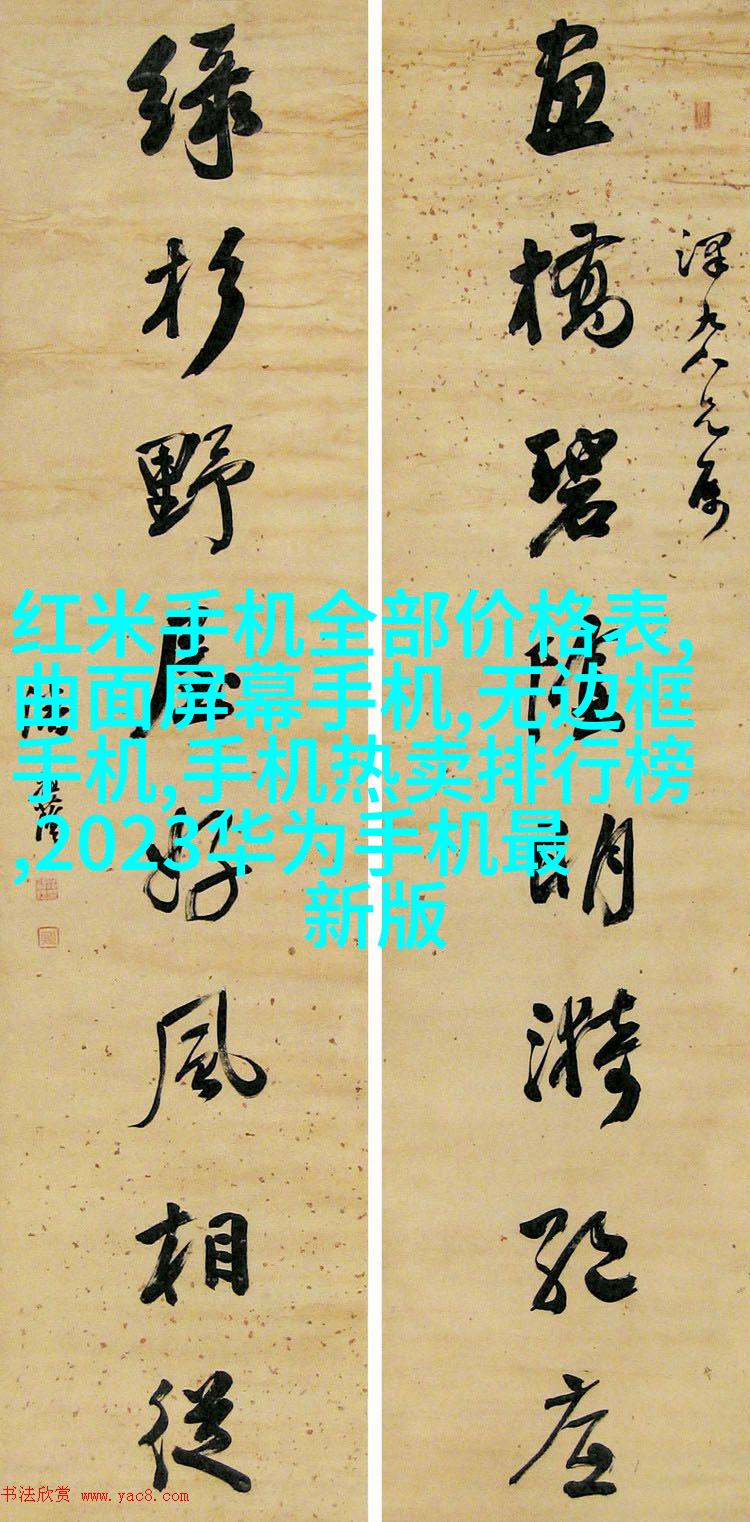 畫橋碧陰明漪絕底
綠杉野屋好風相從
潘祖蔭
红米手机全部价格表,
曲面屏幕手机,无边框
手机,手机热卖排行榜
,2023华为手机最
新版
书法欣赏 www.yac8.com